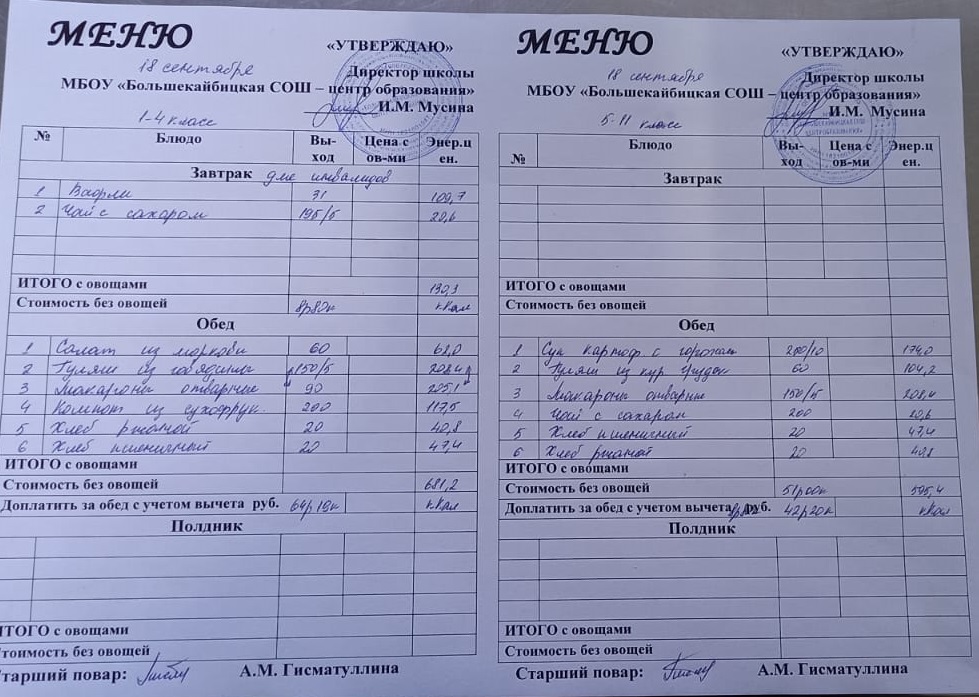 МЕНЮ
«УТВЕРЖДАЮ»
18 сентября
Директор школы
МБОУ «Большекайбицкая СОШ – центр образования»
И.М. Мусина
1-4 класс
№ Блюдо Вы-ход Цена с ов-ми Энер.ц ен.
Завтрак для инвалидов
1 Вафли 31 109,7
2 Чай с сахаром 195/5 20,6
ИТОГО с овощами 130,3
Стоимость без овощей 8р80к кКал
Обед
1 Салат из моркови 60 61,0
2 Гуляш из говядины 150/5 208,4
3 Макароны отварные 90 205,1
4 Компот из сухофрук. 200 117,5
5 Хлеб ржаной 20 40,8
6 Хлеб пшеничный 20 47,4
ИТОГО с овощами
Стоимость без овощей 681,2
Доплатить за обед с учетом вычета руб. 64р19к кКал
Полдник
ИТОГО с овощами
Стоимость без овощей
Старший повар: А.М. Гисматуллина
МЕНЮ
«УТВЕРЖДАЮ»
18 сентября
Директор школы
МБОУ «Большекайбицкая СОШ – центр образования»
И.М. Мусина
5-11 класс
№ Блюдо Вы-ход Цена с ов-ми Энер.ц ен.
Завтрак
ИТОГО с овощами
Стоимость без овощей
Обед
1 Суп картоф. с горохом 200/10 174,0
2 Гуляш из кур грудки 60 104,2
3 Макароны отварные 150/5 208,4
4 Чай с сахаром 200 20,6
5 Хлеб пшеничный 20 47,4
6 Хлеб ржаной 20 40,8
ИТОГО с овощами
Стоимость без овощей 51р00к 595,4
Доплатить за обед с учетом вычета руб. 42р20к кКал
Полдник
ИТОГО с овощами
Стоимость без овощей
Старший повар: А.М. Гисматуллина